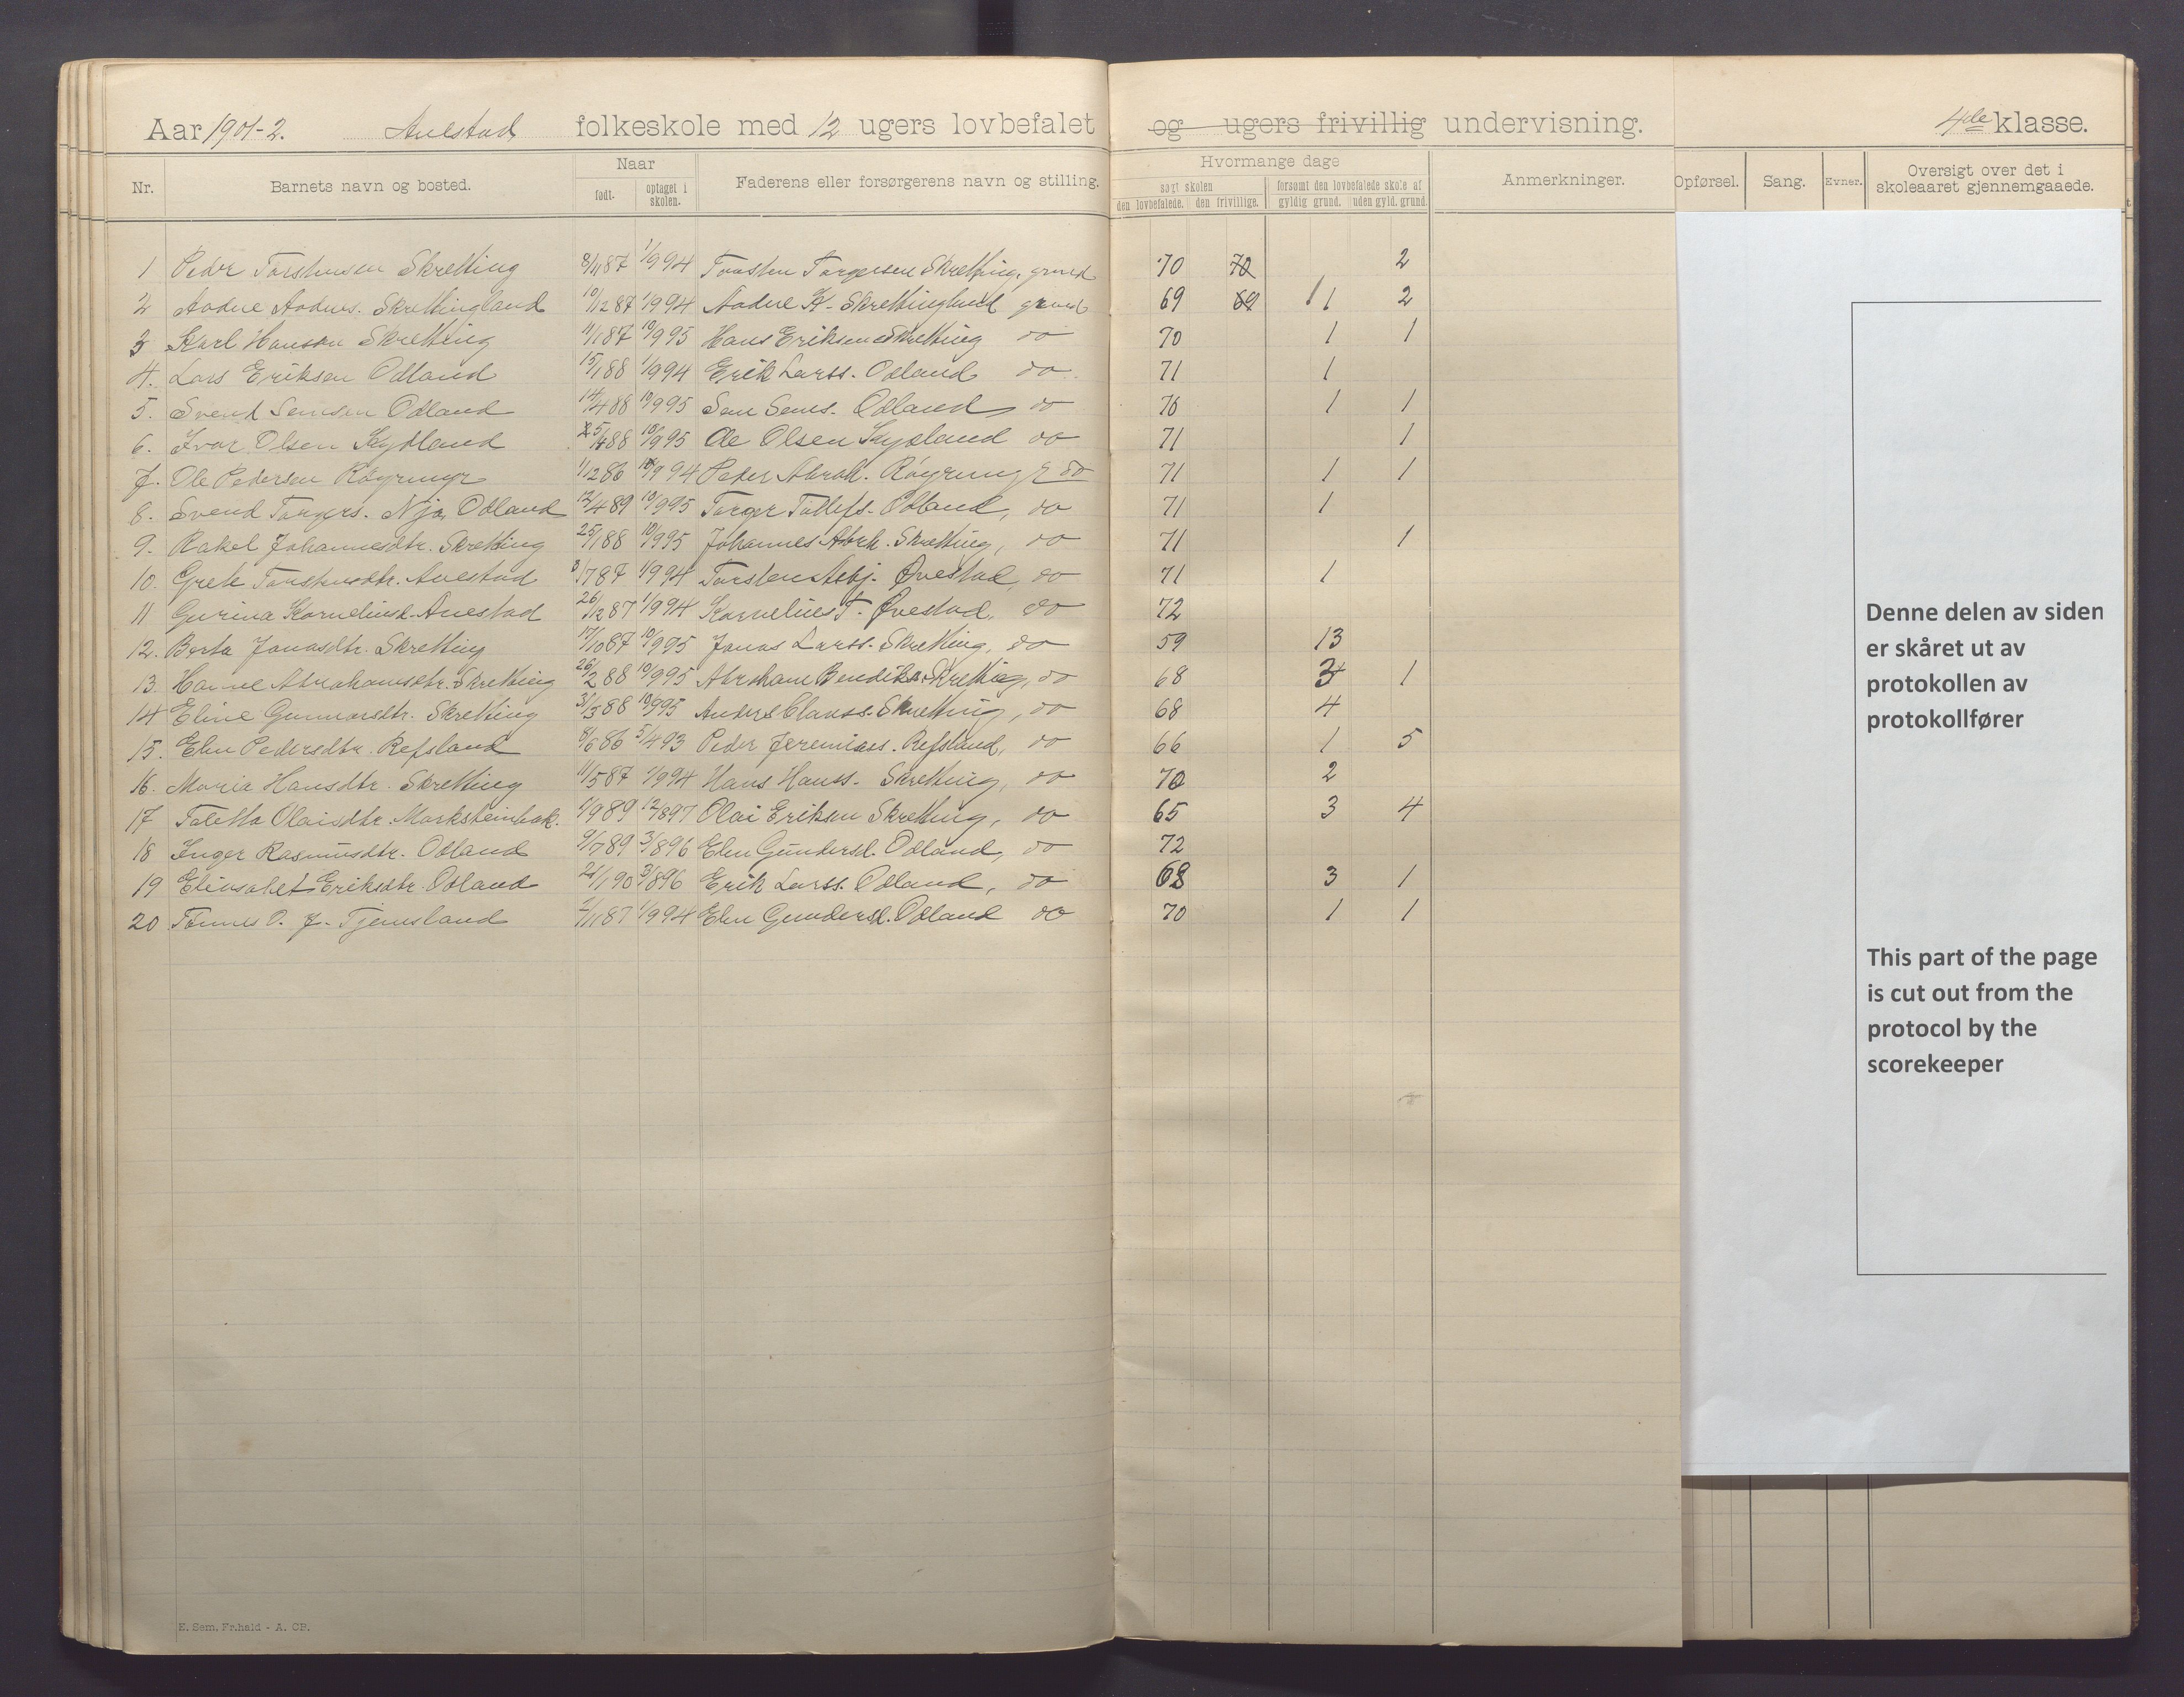 Aar 1901-2. Auestad folkeskole med 12 ugers lovbefalet og ugers frivillig undervisning. 4de klasse.
Nr. Barnets navn og bosted. Naar født. optaget i skolen. Faderens eller forsørgerens navn og stilling. Hvormange dage søgt skolen den lovbefalede. den frivillige. forsømt den lovbefalede skole af gyldig grund. uden gyld. grund. Anmerkninger. Opførsel. Sang. Evner. Oversigt over det i skoleaaret gjennemgaaede.
1 Peder Torstensen Skretting 8/11 87 1/9 94 Torsten Torgersen Skretting, grmd 70 70 2
2 Aadne Aadnes. Skrettingland 10/12 87 1/9 94 Aadne K. Skrettingland grmd 69 69 1 1 2
3 Karl Hanson Skretting 11/1 87 10/9 95 Hans Eriksen Skretting do 70 1 1
4. Lars Eriksen Odland 15/1 88 1/9 94 Erik Larss. Odland do 71 1
5. Svend Semsen Odland 14/4 88 10/9 95 Sem Sems. Odland do 70 1 1
6. Ivar Olsen Kydland 88 10/9 95 Ole Olsen Kydland do 71 1
7. Ole Pedersen Röyrmyr 1/12 86 10/9 94 Peder Abrah. Röyrmyr do 71 1 1
8. Svend Torgers. Njo, Odland 12/4 89 10/9 95 Torger Tollefs. Odland, do 71 1
9. Rakel Johannesdtr. Skretting 25/1 88 10/9 95 Johannes Abrh. Skretting, do 71 1
10. Grete Torstensdtr. Auestad 3/7 87 1/9 94 Torsten Asbj. Øvestad, do 71 1
11 Gurina Korneliusd. Auestad 26/12 87 1/9 94 Kornelius T. Øvestad, do 72
12. Berta Jonasdtr. Skretting 17/10 87 10/9 95 Jonas Larss. Skretting, do 59 13
13. Hanne Abrahamsdtr. Skretting 26/2 88 10/9 95 Abraham Bendiks. Skretting, do 68 3 1
14 Eline Gunnarsdtr. Skretting 31/3 88 10/9 95 Anders Clauss. Skretting, do 68 4
15. Elen Pedersdtr. Refsland 8/6 86 5/4 93 Peder Jeremiass. Refsland, do 66 1 5
16. Maria Hansdtr. Skretting 11/5 87 1/9 94 Hans Hanss. Skretting, do 70 2
17 Taletta Olaisdtr. Marksteinbak. 1/9 89 12/8 97 Olai Eriksen Skretting, do 65 3 4
18 Inger Rasmusdtr. Odland 9/7 89 3/8 96 Elen Gundersd. Odland, do 72
19 Elisabet Eriksdtr. Odland 21/1 90 3/8 96 Erik Larss. Odland, do 68 3 1
20 Tönnes O. J. Tjemsland 2/11 87 1/9 94 Elen Gundersd. Odland do 70 1 1
Denne delen av siden
er skåret ut av
protokollen av
protokollfører
This part of the page
is cut out from the
protocol by the
scorekeeper
E. Sem, Fr.hald - A. CB.